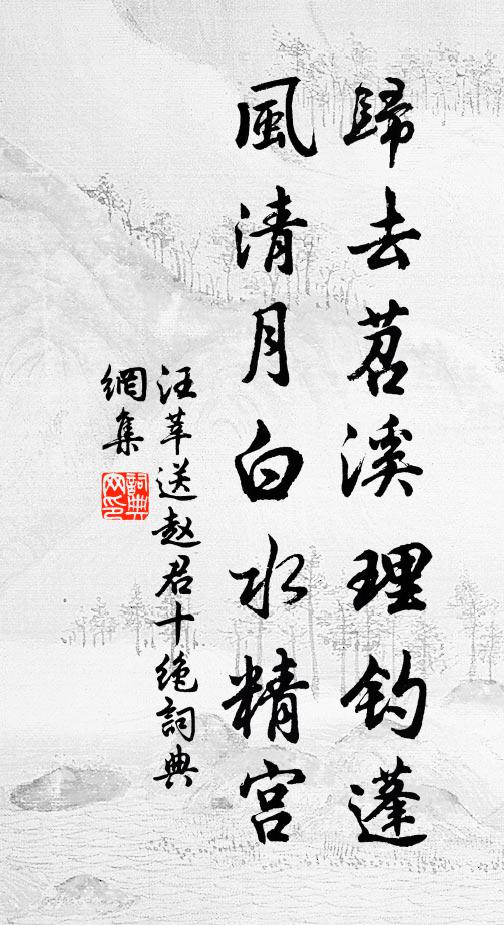 歸去苕溪理釣蓬
風清月白水精宮
汪莘送赵君十绝詞典
網集
詞典
网印